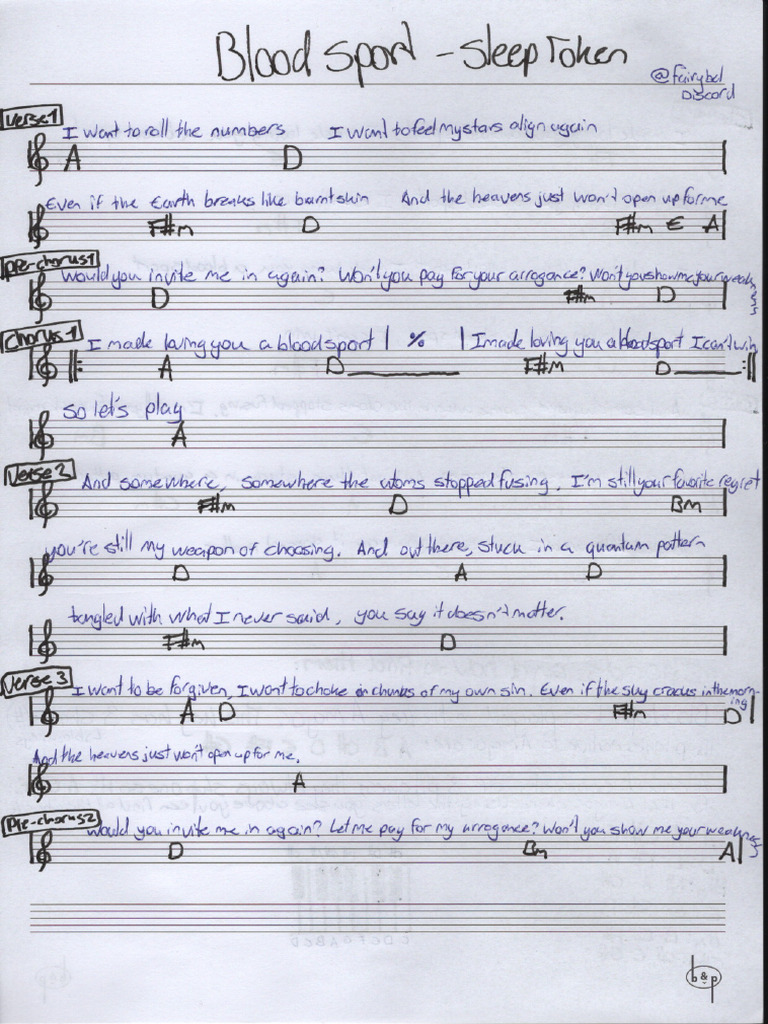 Bloodsport - Sleep Token
@fairybel
Discord
Verse 1
I want to roll the numbers I want to feel my stars align again
A D
Even if the Earth breaks like burnt skin And the heavens just won't open up for me
F#m D F#m E A
pre-chorus 1
Would you invite me in again? Won't you pay for your arrogance? Won't you show me your weakness
D F#m D
Chorus 1
I made loving you a bloodsport | % | I made loving you a bloodsport I can't win
A D F#m D
so let's play
A
Verse 2
And somewhere, somewhere the atoms stopped fusing. I'm still your favorite regret
F#m D Bm
you're still my weapon of choosing. And out there, stuck in a quantum pattern
D A D
tangled with what I never said, you say it doesn't matter.
F#m D
Verse 3
I want to be forgiven, I want to choke in chunks of my own sin. Even if the sky cracks in the morning
A D F#m D
And the heavens just won't open up for me.
A
Pre-chorus 2
Would you invite me in again? Let me pay for my arrogance? Won't you show me your weakness
D Bm A
b&p